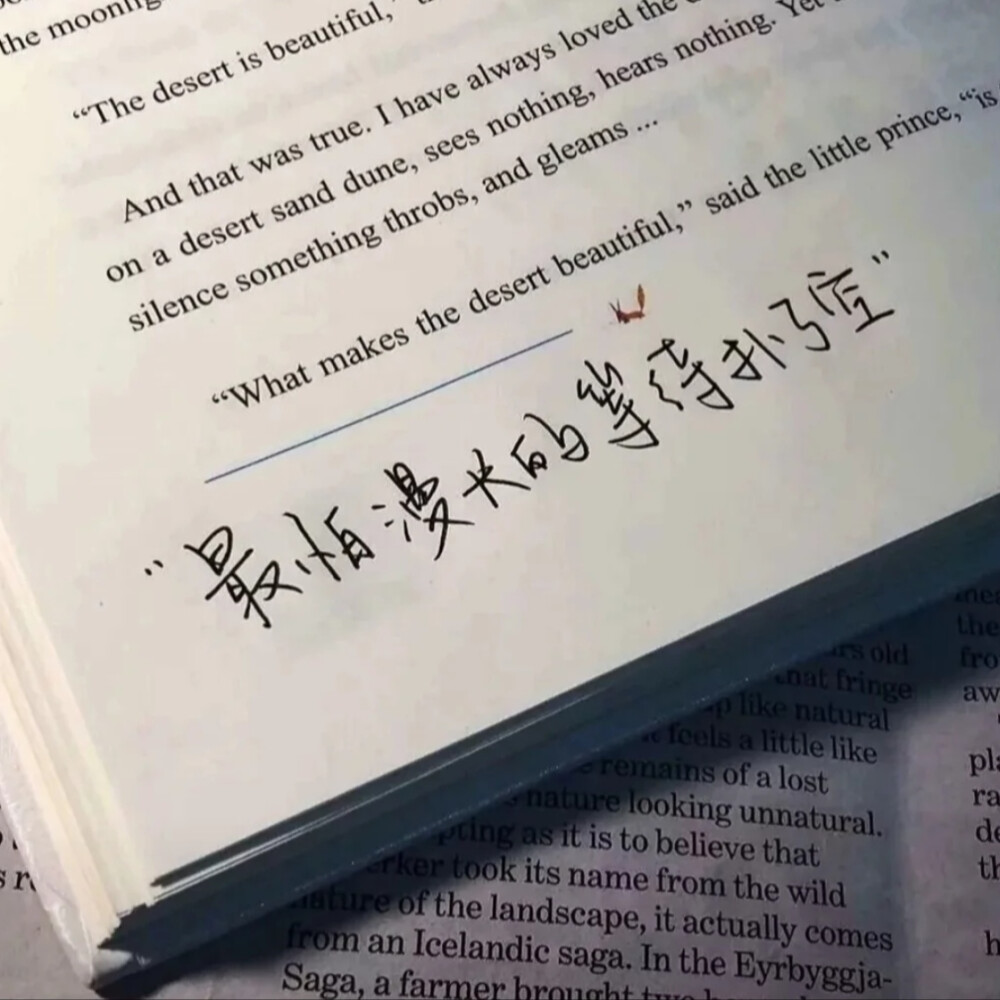 the moonlig
“The desert is beautiful,”
And that was true. I have always loved the
on a desert sand dune, sees nothing, hears nothing. Yet
silence something throbs, and gleams ...
“What makes the desert beautiful,” said the little prince, “is
“最怕漫长的等待扑了空”
ars old
that fringe
up like natural
it feels a little like
remains of a lost
nature looking unnatural.
pting as it is to believe that
erker took its name from the wild
nature of the landscape, it actually comes
from an Icelandic saga. In the Eyrbyggja-
Saga, a farmer brought two
mea
the
fro
aw
pla
ra
de
th
h